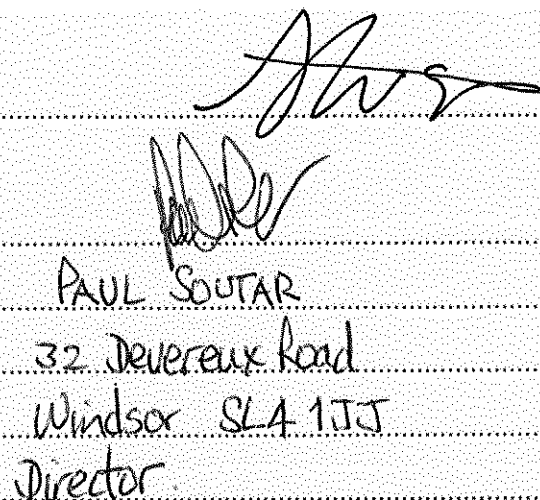 PAUL SOUTAR
32 Devereux Road
Windsor SL4 1JJ
Director